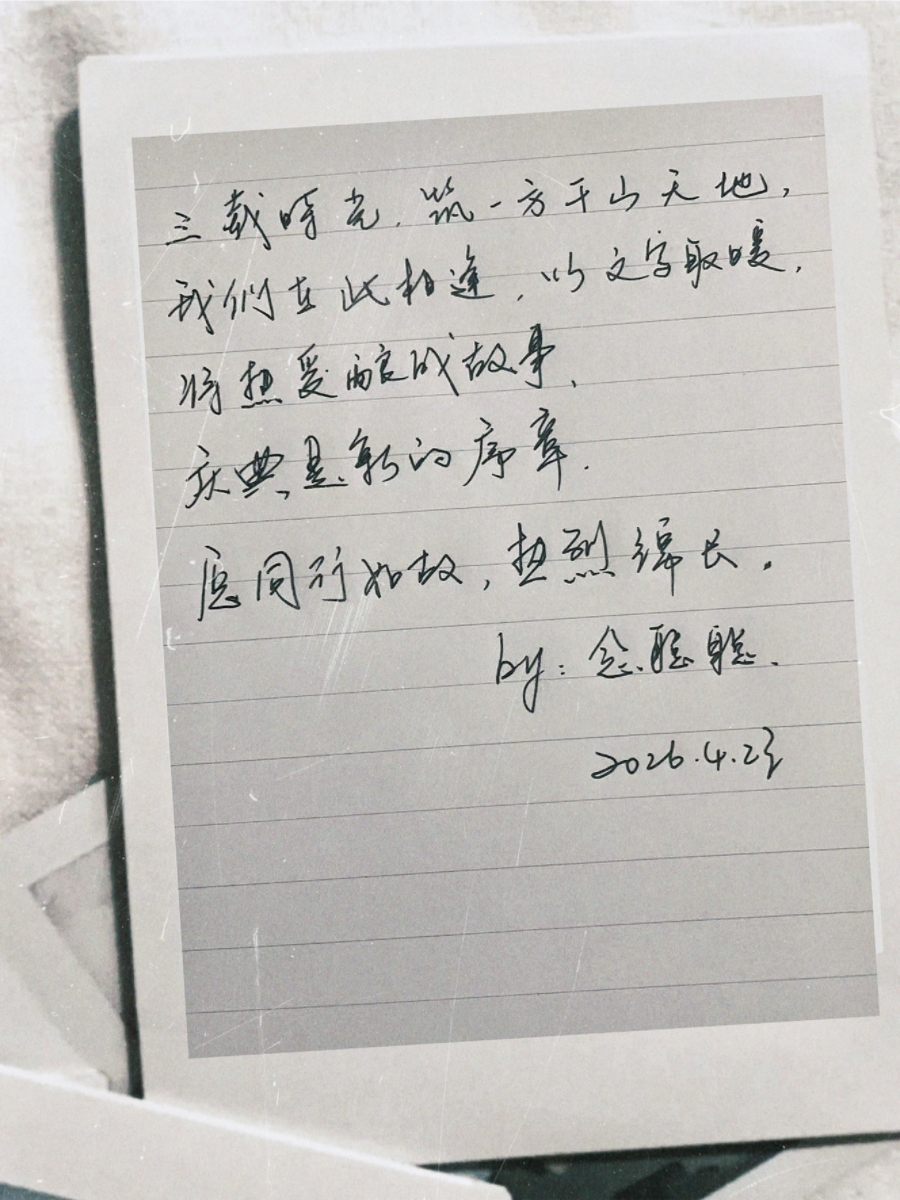 三载时光，筑一方千山天地，
我们在此相逢，以文字取暖，
将热爱酿成故事、
庆典是新的序章.
愿同行如故，热烈绵长。
by: 念聪聪.
2026.4.23